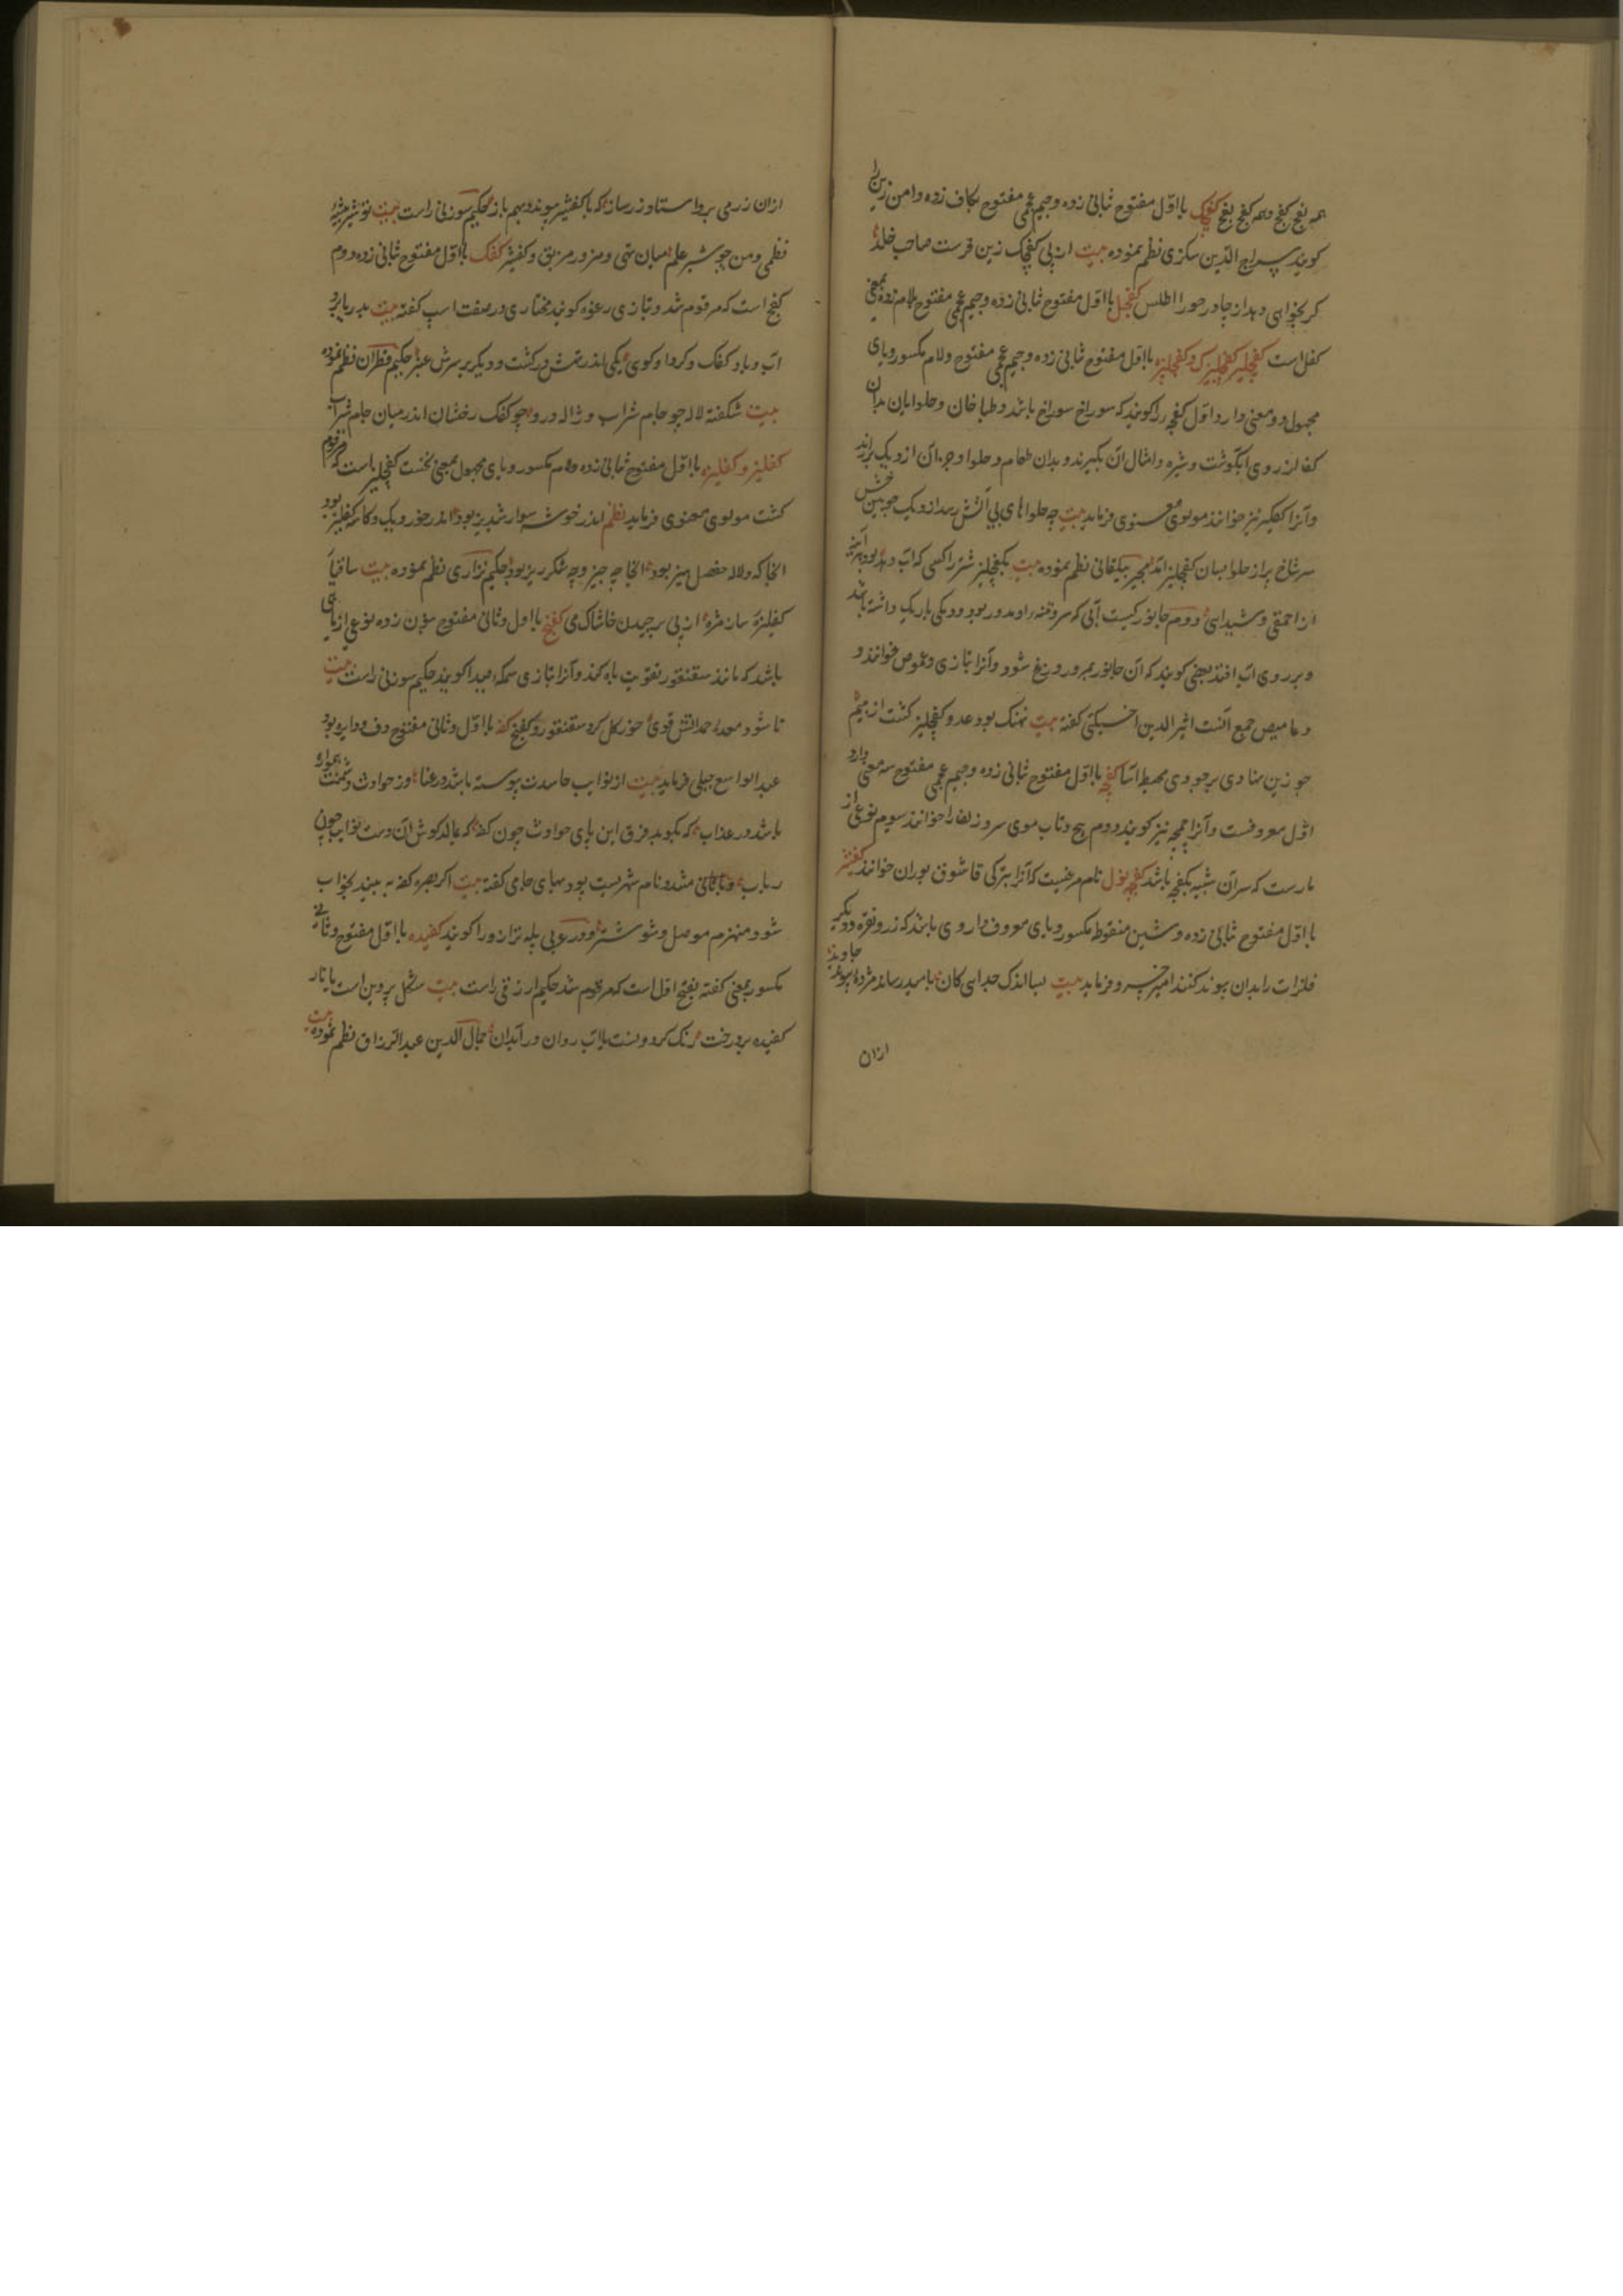 همه بفج کفج وهمه کفج بفج کفچک بااول مفتوح ثبانی زده وجیم عجمی مفتوح بکاف زده دامن زین را
کویند سراج الدین سکزی نظم نموده بیت از پی کفچک زین فرست صاحب خلد
کر بخواهی دهد از چادر حورا اطلس کفچل بااول مفتوح ثبانی زده وجیم عجمی مفتوح بلام زده بمعنی
کفل است کفچلیز کفچلیزک و کفچلیزه بااول مفتوح ثبانی زده وجیم عجمی مفتوح ولام مکسور ویای
مجهول دو معنی دارد اول کفچه را کویند که سوراخ سوراخ باشد وطباخان وحلوایان بدان
کف از روی ابکوشت وشیره وامثال آن بکیرند وبدان طعام وحلوا وجز آن از دیک برارند
وآنرا کفکیر نیز خوانند مولوی معنوی فرماید بیت چه حلواهای بی آتش رسد از دیک چوبین خش
سر شاخ پر از حلوا بسان کفچلیز آمد مجیر بیلقانی نظم نموده بیت بکفچلیز شتر را کسی که آب دهد بود هراینه
از احمقی وشیدایی دوم جانورکیست آبی که سر وتنه او مدور بود ودمکی باریک داشته باشد
وبر روی آب افتد بعضی کویند که آن جانور بمرور وزغ شود وآنرا بتازی دعموص خوانند و
دعامیص جمع آنست اثیر الدین اخسیکتی کفته بیت نهنک بود عدو کفچلیز کشت از بیم
چو زین نهادی بر جودی محیط آسا کفچه بااول مفتوح ثبانی زده وجیم عجمی مفتوح سه معنی دارد
اول معروفست وآنرا چمچه نیز کویند دوم پیچ وتاب موی سر وزلف را خوانند سوم نوعی از
مارست که سر آن شبیه بکفچه باشد کفچه نول نام مرغیست که آنرا بترکی قاشوق بوران خوانند کفشیر
بااول مفتوح ثبانی زده وشین منقوط مکسور ویای معروف داروی باشد که زر ونقره ودیکر
فلزات را بدان پیوند کنند امیر خسرو فرماید بیت بسا اندک جدایی کان بامید رساند مژده پیوند جاوید
ازان
ازان زرمی برد استاد زر ساز که با کفشیر پیوندد بهم باز حکیم سوزنی راست بیت تو شیر بیشه
نظمی ومن چو شیر علم میان تهی ومزور مزبق وکفشیر کفک بااول مفتوح ثبانی زده دوم
کفج است که مرقوم شد وبتازی رغوه کویند مختاری در صفت اسپ کفته بیت بدرباید
آب وباد کفک وکرد او کوی یکی اندر تمش در کشت ودیکر بر سرش عنبر حکیم قطران نظم نموده
بیت شکفته لاله چو جام شراب وژاله درو چو کفک رخشان اندر میان جام شراب
کفلیز و کفلیزه بااول مفتوح ثبانی زده ولام مکسور ویای مجهول بمعنی نخست کفچلیز است که مرقوم
کشت مولوی معنوی فرماید نظم اندر خوشت سوار شبدیز بود اندر خور دیک وکاسه کفلیز بود
انجا که ولاله مفصل میز بود انجا چه چیز وچه شکرریز بود حکیم نزاری نظم نموده بیت ساقیا
کفلیزه ساز مژه از پی بر چیدن خاشاک می کفنج بااول وثانی مفتوح بنون زده نوعی از ماهی
باشد که مانند سقنقور تقویت باه کند وآنرا بتازی سمکه صیدا کویند حکیم سوزنی راست بیت
تا شود معده حمدانش قوی خور کل کرد سقنقور وکفنج کفه بااول وثانی مفتوح دف ودایره بود
عبد الواسع جبلی فرماید بیت از نوایب حاسدت پیوسته باشد در عنا وز حوادث دشمنت همواره
باشد در عذاب که بکوبد فرق این پای حوادث چون کفه که بمالد کوش آن دست نوایب چون
رباب وباثانی مشدد نام شهریست بود بهای جامی کفته بیت اکر بصره کفه به بیند بخواب
شود منهزم موصل وشوشتر ودر عربی پله ترازو را کویند کفیده بااول مفتوح وثانی
مکسور بمعنی کفته بفتح اول است که مرقوم شد حکیم ارزقی راست بیت شکل پروین است یا نار
کفیده بر درخت رنک کردونست یا آب روان در آبدان جمال الدین عبد الرزاق نظم نموده بیت